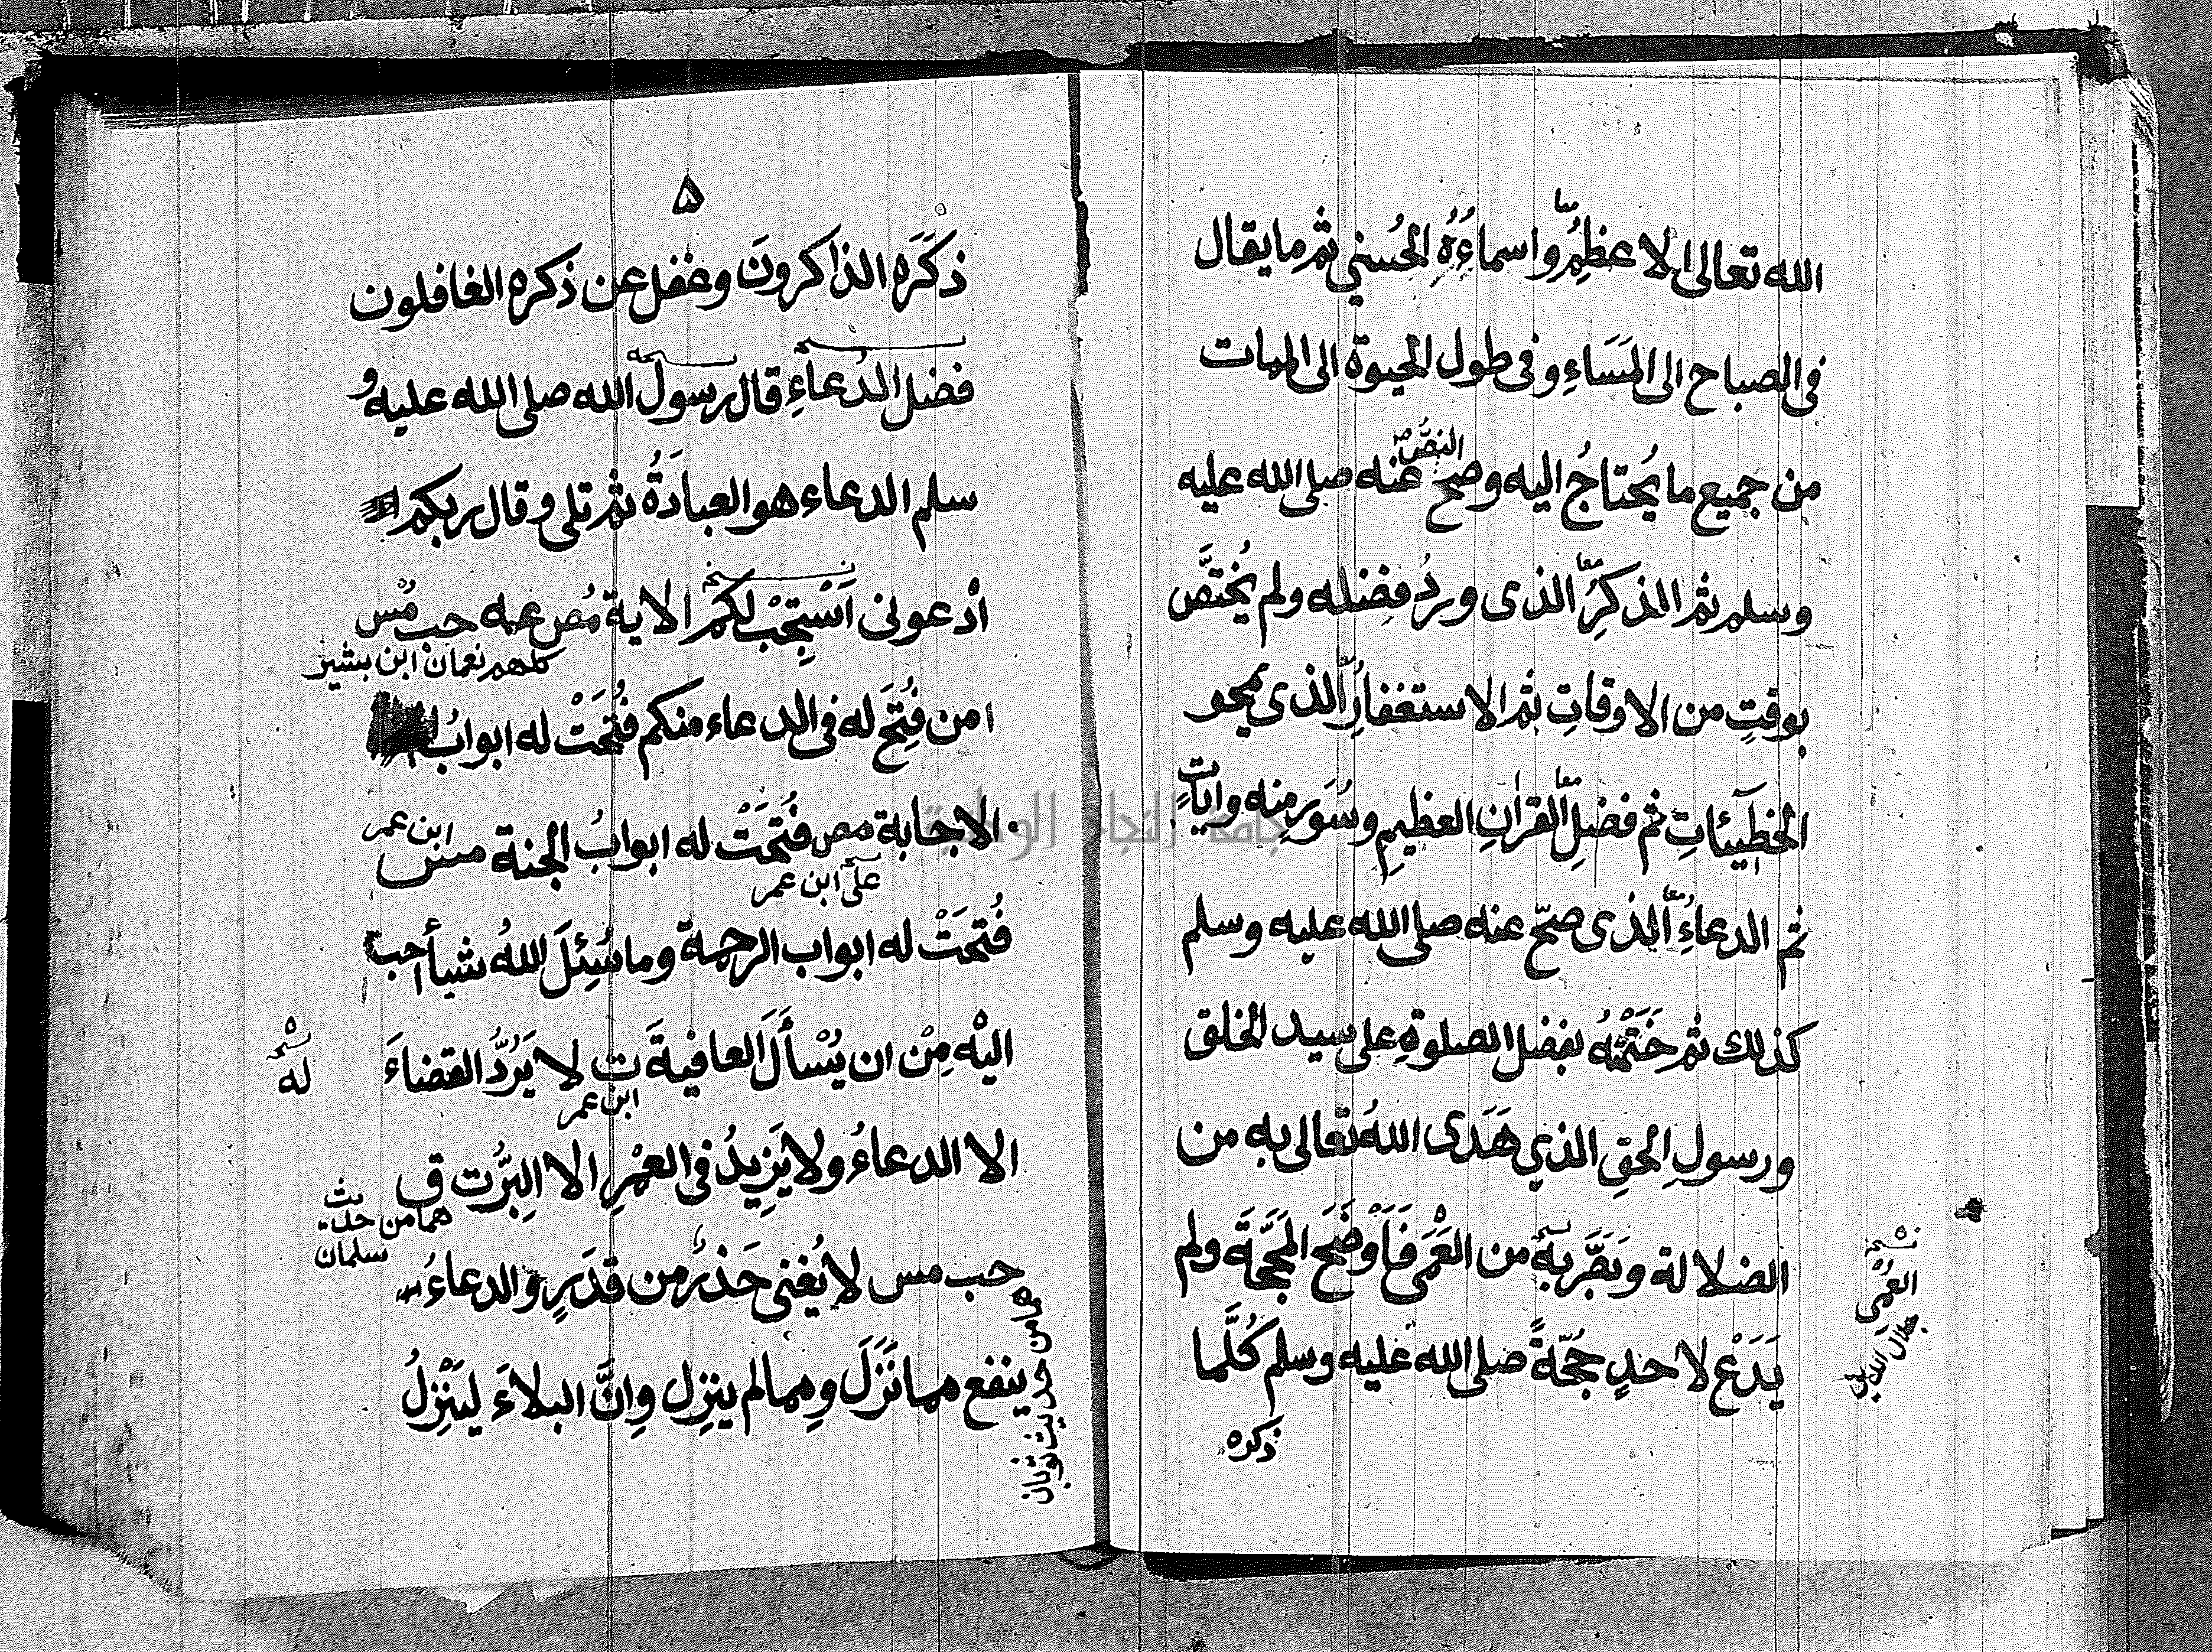 الله تعالى الاعظمِ واسماءُهُ الحُسنى ثم ما يقال
معا
فى الصباح الى المَسَاءِ وفى طول الحيوة الى الممات
من جميع ما يُحتاجُ اليه وصح عنه صلى الله عليه
النصُّ
وسلم ثم الذكرِ الذى وردُ فضله ولم يُختَصَّ
بوقتٍ من الاوقاتِ ثم الاستغفارِ الذى يمحو
الخطيئاتِ ثم فضلِ القرانِ العظيمِ وسُوَرٍ منه واياتٍ
معا
ثم الدعاءِ الذى صحّ عنه صلى الله عليه وسلم
معا
كذلك ثم خَتَمْتُهُ بفضل الصلوةِ على سيد الخلق
ورسولِ الحقِ الذي هَدَى اللهُ تعالى به من
الضلالة وبَصَّر به من العَمٰى فَاَوْضَحَ المَحَجَّةَ ولم
نسخه
العُمْىِ
جلال الدين
يَدَعْ لاحدٍ حُجّةً صلى الله عليه وسلم كُلَّما
ذكره
٥
ذكَرَه الذاكرونَ وغفل عن ذكره الغافلون
فضل الدُعاءِ قال رسول الله صلى الله عليه و
سلم الدعاء هو العبادَةُ ثم تلى وقال ربكم
أدعونى اَسْتَجِبْ لكم الاية مُص عه حب مُس
كلهم نعمان ابن بشير
من فُتِحَ له فى الدعاء منكم فُتِحَتْ له ابوابُ
الاجابة مص فُتِحَتْ له ابوابُ الجنة مس ابن عمر
على ابن عمر
فُتِحَتْ له ابواب الرحمة وما سُئِلَ اللهُ شيأ احب
اليْه مِنْ ان يُسْأَلَ العافيةَ ت لا يَرُدُّ القضاءَ
ابن عمر
نسخه
له
الا الدعاءُ ولا يَزِيدُ فى العُمْرِ الا البِرُّ ت ق
هما من حديث
سلمان
حب مس لا يُغنى حَذَرٌ من قدَرٍ والدعاءُ
ينفع مما نَزَلَ ومما لم ينزِل واِنَّ البلاءَ ليَنْزِلُ
هما من حديث ثوبان
جامعة النجاح الوطنية